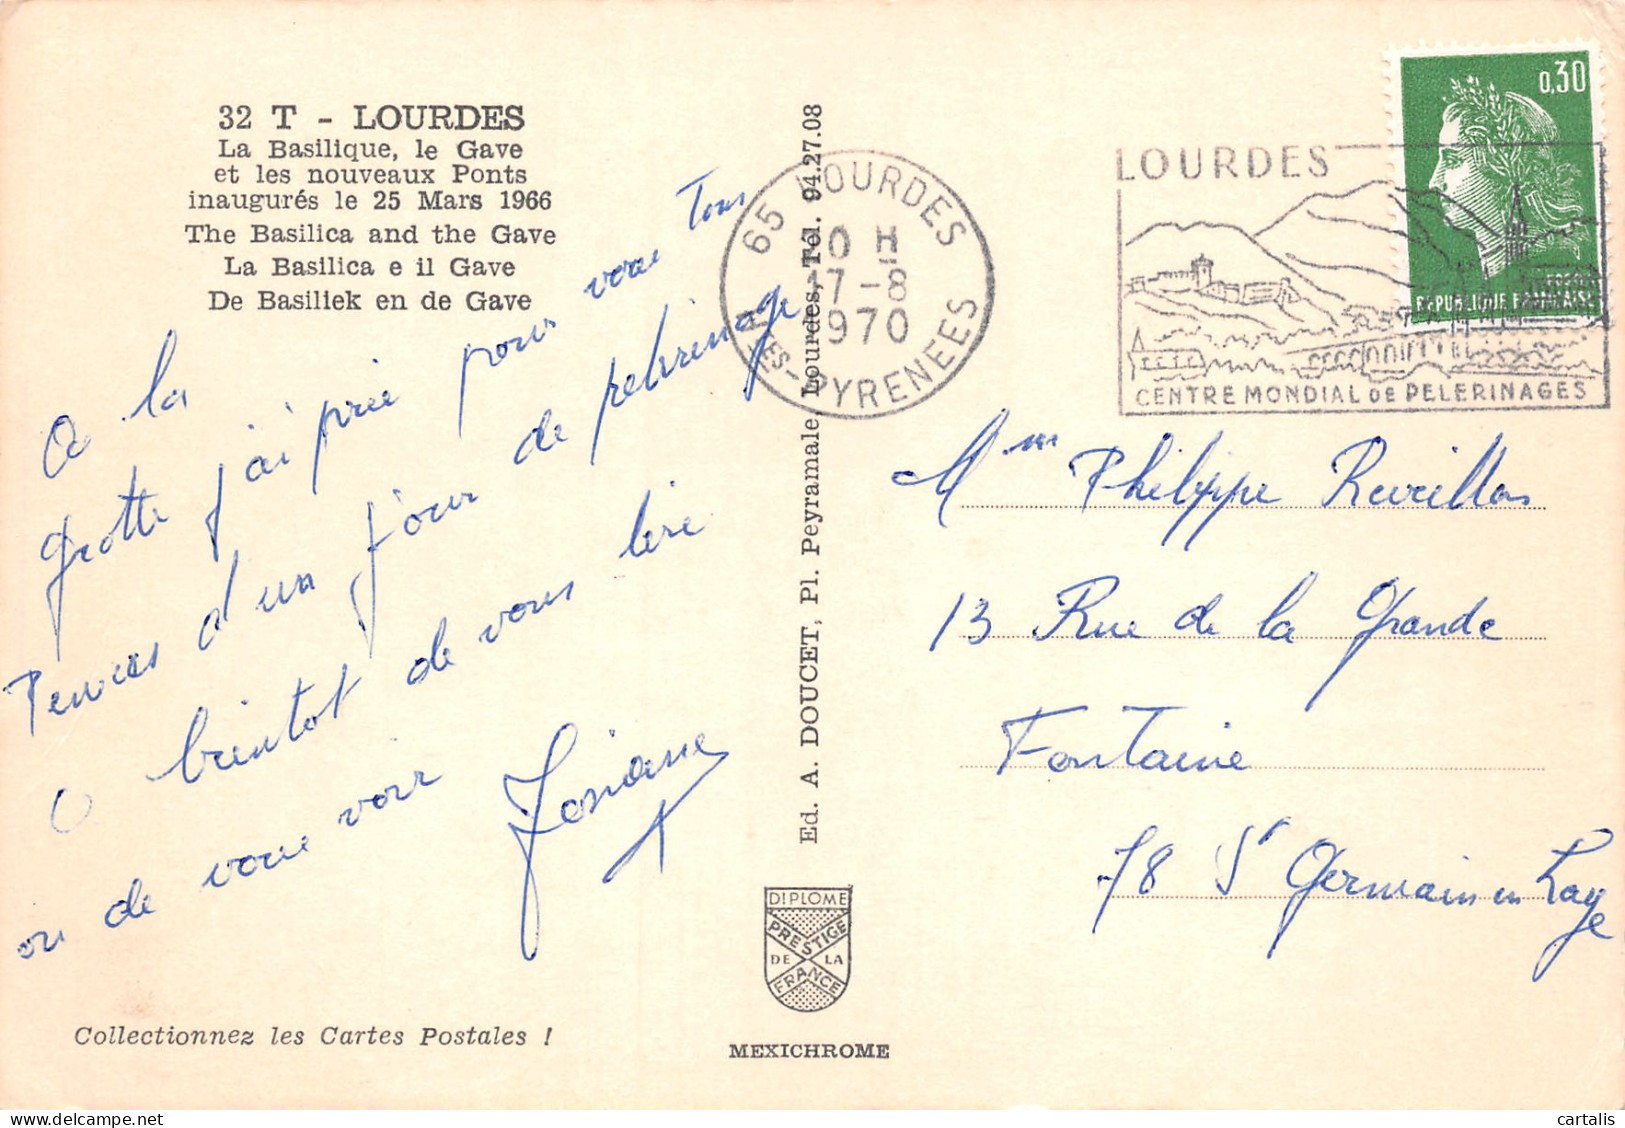 32 T - LOURDES
La Basilique, le Gave
et les nouveaux Ponts
inaugurés le 25 Mars 1966
The Basilica and the Gave
La Basilica e il Gave
De Basiliek en de Gave
A la
grotte j'ai priée pour vous Tous
Pensées d'un jour de pelerinage
A bientot de vous lire
ou de vous voir
Josiane
Collectionnez les Cartes Postales !
Ed. A. DOUCET, Pl. Peyramale, Lourdes, Tél. 94.27.08
DIPLOME
PRESTIGE
DE LA
FRANCE
MEXICHROME
65 LOURDES
H
17-8
1970
HTES-PYRENEES
LOURDES
CENTRE MONDIAL DE PELERINAGES
0,30
REPUBLIQUE FRANÇAISE
POSTES
Mme Philippe Reveillas
13 Rue de la Grande
Fontaine
78 St Germain en Laye
cartalis